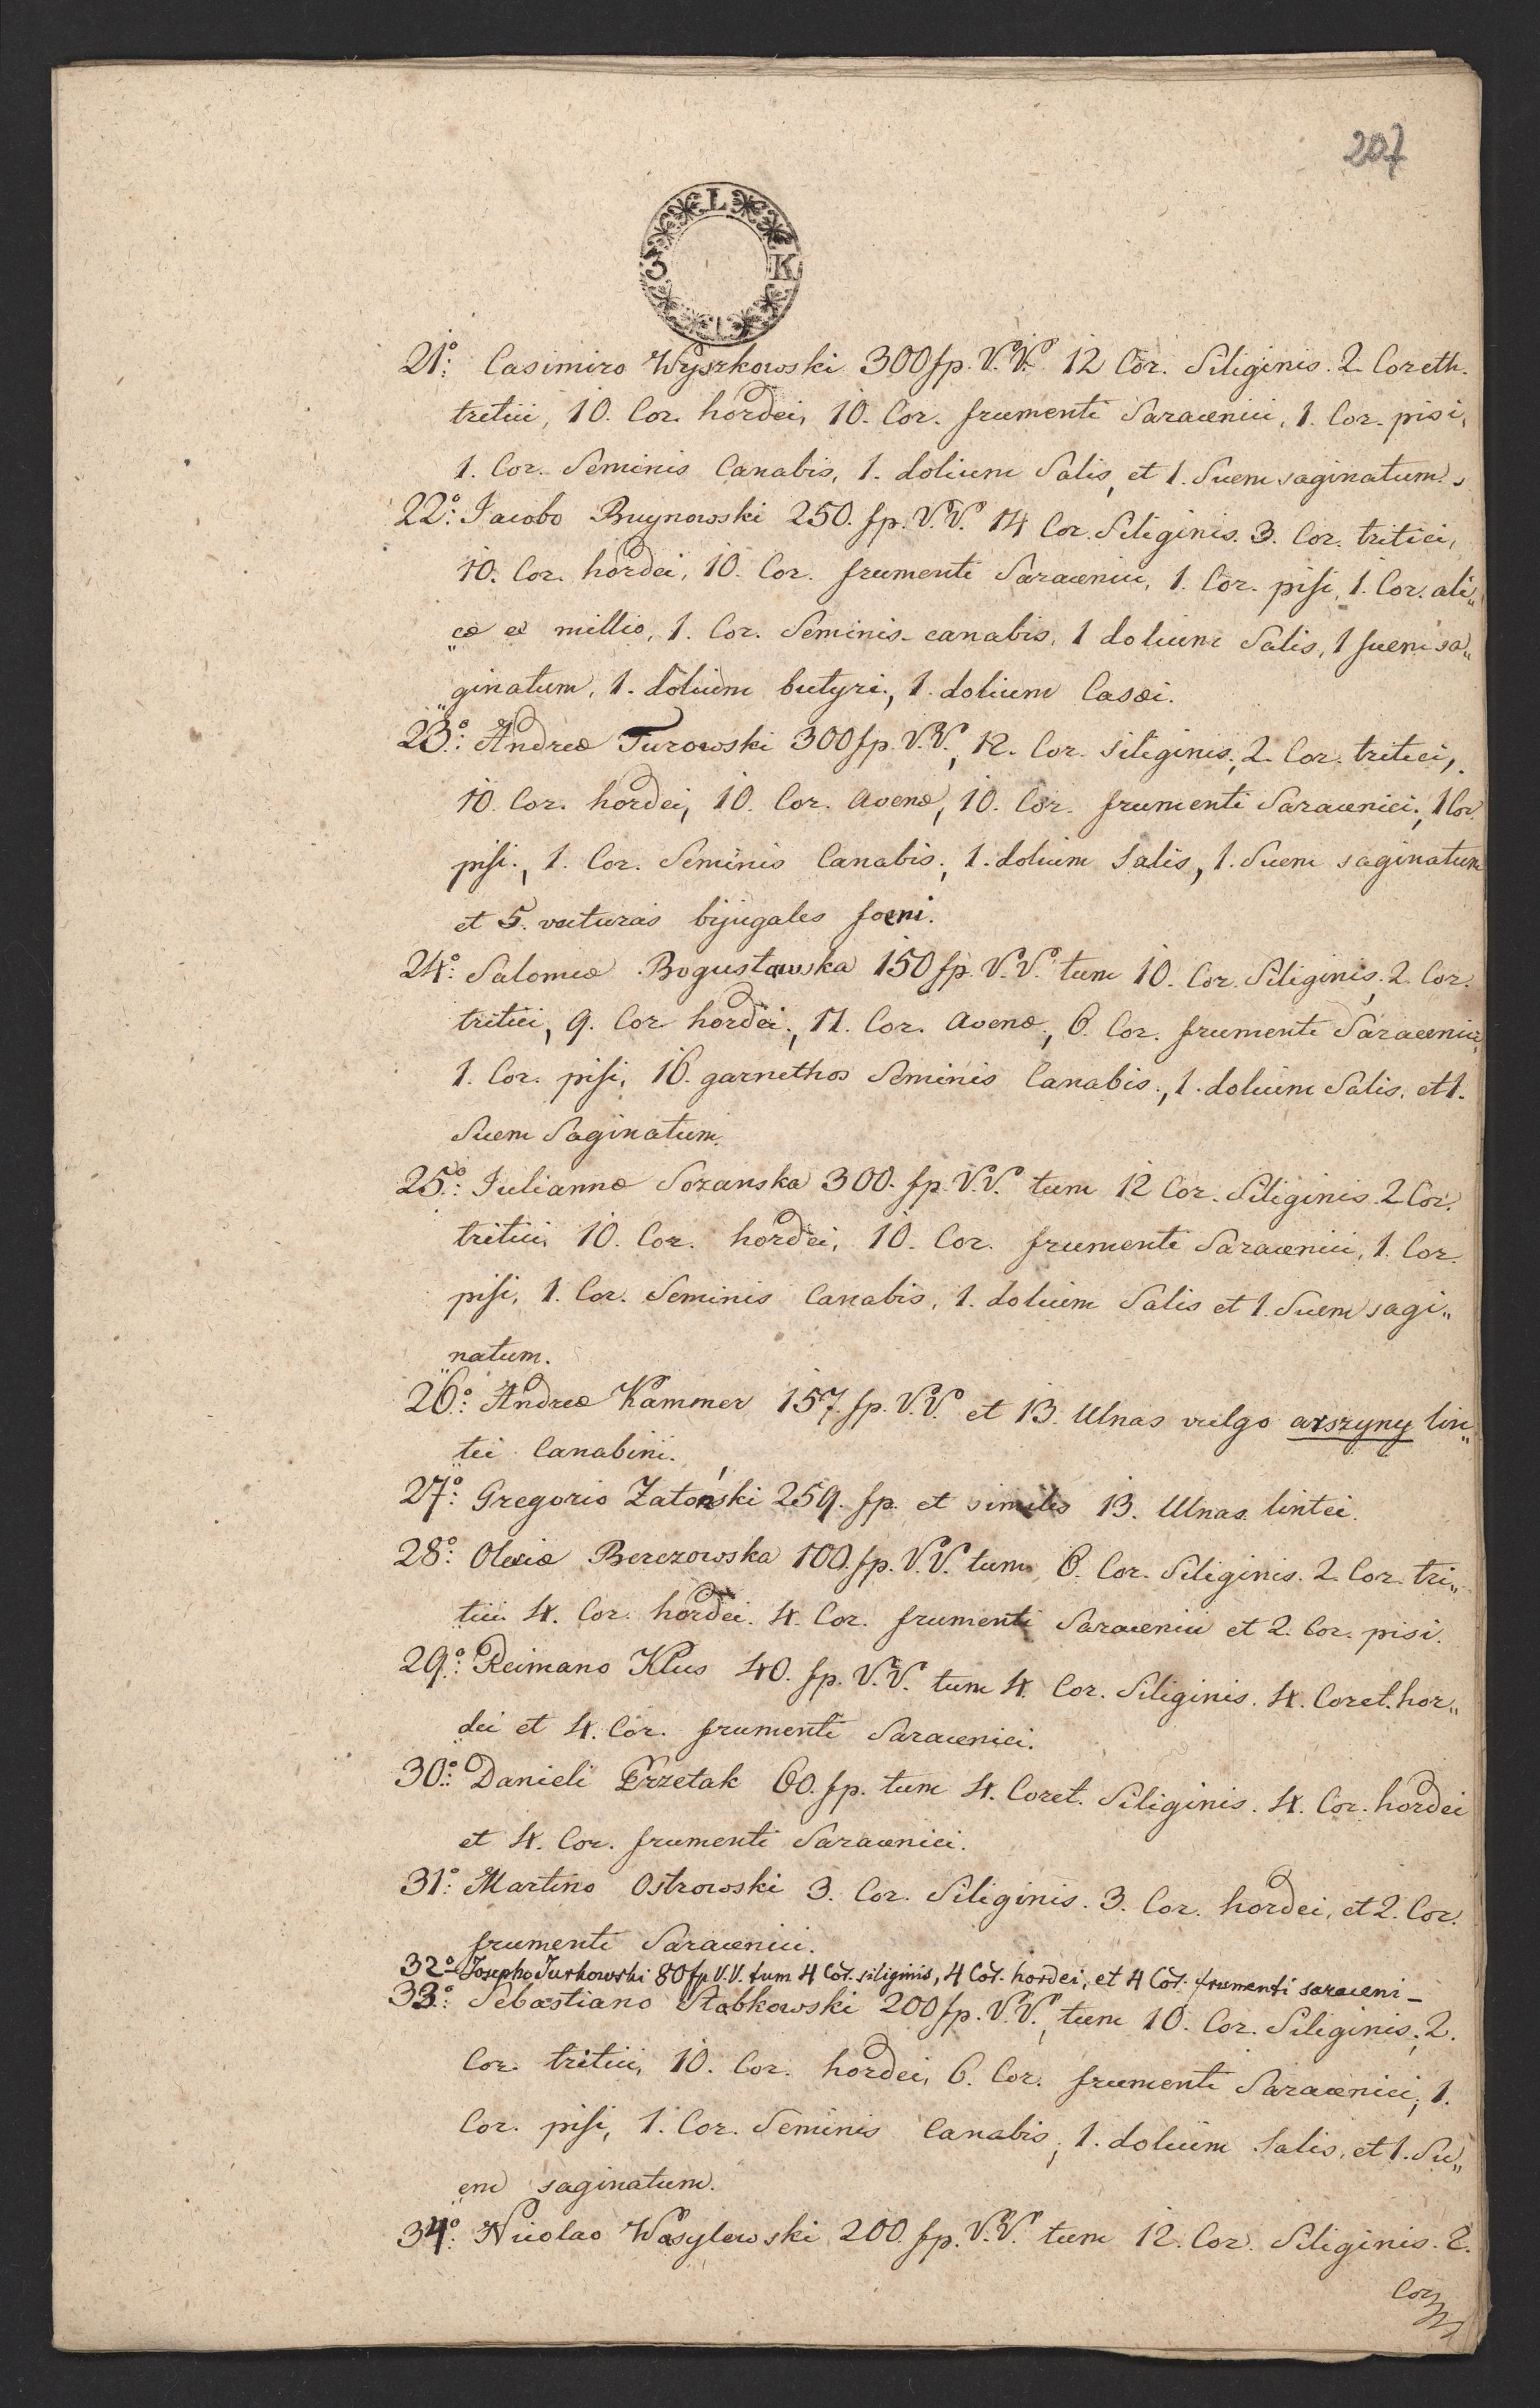 207
L
3 K
1
21°: Casimiro Wyszkowski 300 fp. V.V. 12 Cor. Siliginis. 2. Coreth.
tritici, 10. Cor. hordei, 10. Cor. frumenti Saracenici, 1. Cor. pisi,
1. Cor. Seminis Canabis, 1. dolium Salis, et 1. Suem saginatum.
22°: Jacobo Buynowski 250. fp. V.V. 14 Cor. Siliginis. 3. Cor. tritici,
10. Cor. hordei, 10. Cor. frumenti Saracenici, 1. Cor. pisi, 1. Cor. ali„
„cæ ex millio, 1. Cor. Seminis canabis, 1 dolium Salis, 1 suem sa„
„ginatum, 1. dolium butyri, 1. dolium Casei.
23°: Andreæ Turowski 300 fp. V.V., 12. Cor. siliginis, 2. Cor. tritici,
10. Cor. hordei, 10. Cor. Avenæ, 10. Cor. frumenti Saracenici, 1 Cor.
pisi., 1. Cor. Seminis Canabis, 1. dolium Salis, 1. Suem saginatum
et 5. vecturas bijugales foeni.
24°: Salomeæ Bogusławska 150 fp. V.V. tum 10. Cor. Siliginis, 2. Cor.
tritici, 9. Cor hordei, 11. Cor. Avenæ, 6. Cor. frumenti Saracenici,
1. Cor. pisi, 16. garnethos Seminis Canabis, 1. dolium Salis, et 1.
Suem Saginatum.
25°: Juliannæ Sozanska 300. fp. V.V. tum 12 Cor. Siliginis. 2 Cor.
tritici, 10. Cor. hordei, 10. Cor. frumenti Saracenici, 1. Cor.
pisi, 1. Cor. Seminis Canabis, 1. dolium Salis et 1. Suem sagi„
„natum.
26°: Andreæ Kammer 157. fp. V.V. et 13. Ulnas vulgo arszyny lin„
„tei Canabini.
27°: Gregorio Zatoński 259. fp. et similes 13. Ulnas lintei.
28°: Olexiæ Berezowska 100. fp. V.V. tum 6. Cor. Siliginis. 2. Cor. tri„
„tici 4. Cor. hordei. 4. Cor. frumenti Saracenici et 2. Cor. pisi.
29°: Reimano Klus 40. fp. V.V. tum 4. Cor. Siliginis. 4. Coret. hor„
„dei et 4. Cor. frumenti Saracenici.
30°: Danieli Przetak 60. fp. tum 4. Coret. Siliginis. 4. Cor. hordei
et 4. Cor. frumenti Saracenici.
31°: Martino Ostrowski 3. Cor. Siliginis. 3. Cor. hordei, et 2. Cor.
frumenti Saracenici.
32° Josepho Jurkowski 80 fp V.V. tum 4 Cor. siliginis, 4 Cor. hordei, et 4 Cor. frumenti saraceni–
33°: Sebastiano Słabkowski 200 fp. V.V., tum 10. Cor. Siliginis, 2.
Cor. tritici, 10. Cor. hordei, 6. Cor. frumenti Saracenici, 1.
Cor. pisi, 1. Cor. Seminis Canabis, 1. dolium Salis, et 1. Su„
„em saginatum.
34°: Nicolao Wasylewski 200. fp. V.V. tum 12. Cor. Siliginis. 2.
Cor